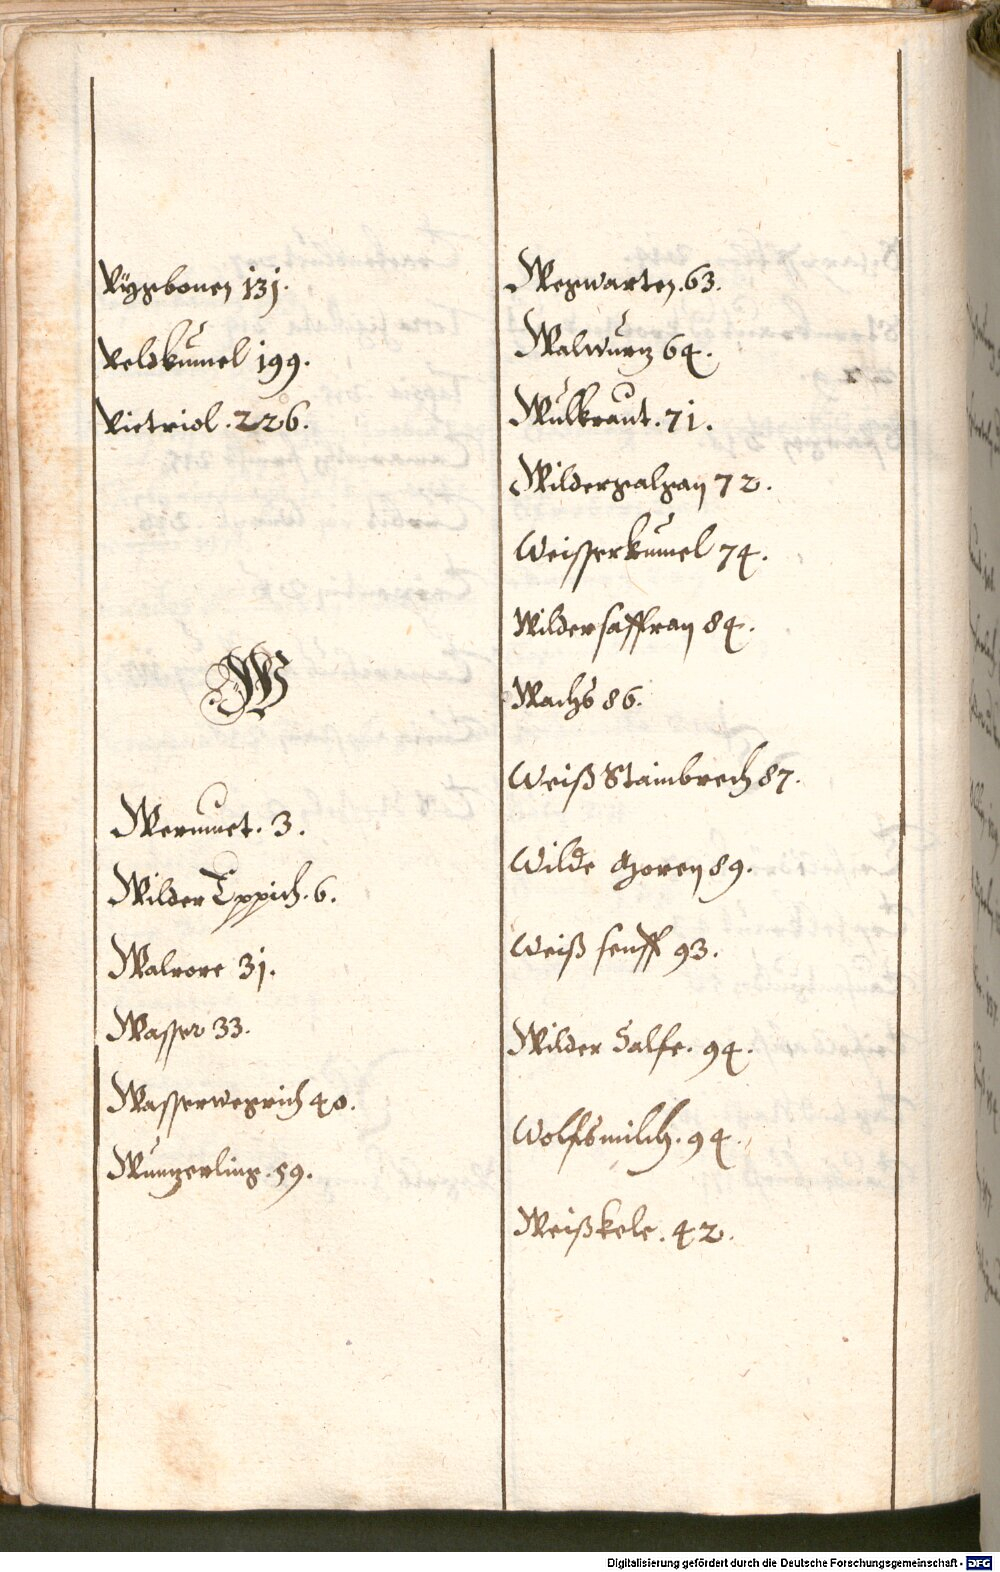 Vÿgbonen 131.
Veldkümel 199.
Victriol. 226.
W
Wermuet. 3.
Wilder Eppich. 6.
Walrore 31.
Wasser 33.
Wasserwegrich 40.
Wüntzerling. 59.
Wegwarten. 63.
Walwürtz 64.
Wulkraut. 71.
Wildergalgan 72.
Weisserkümel 74.
Wildersaffran 84.
Wachs 86.
Weiß Stainbrech 87.
Wilde 89.
Weiß senff 93.
Wilder Salfe. 94.
Wolfsmilch. 94.
Weißkele. 42.
Digitalisierung gefördert durch die Deutsche Forschungsgemeinschaft - DFG